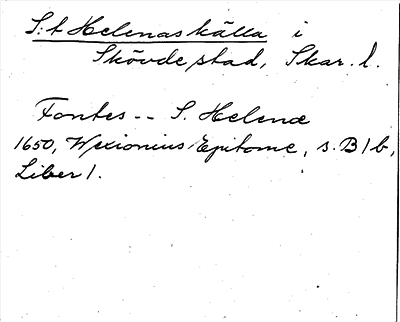 S:t Helenas källa i
Skövde stad, Skar. l.
Fontes -- S. Helenæ
1650, Wexionius Epitome, s. B 1 b,
Liber 1.